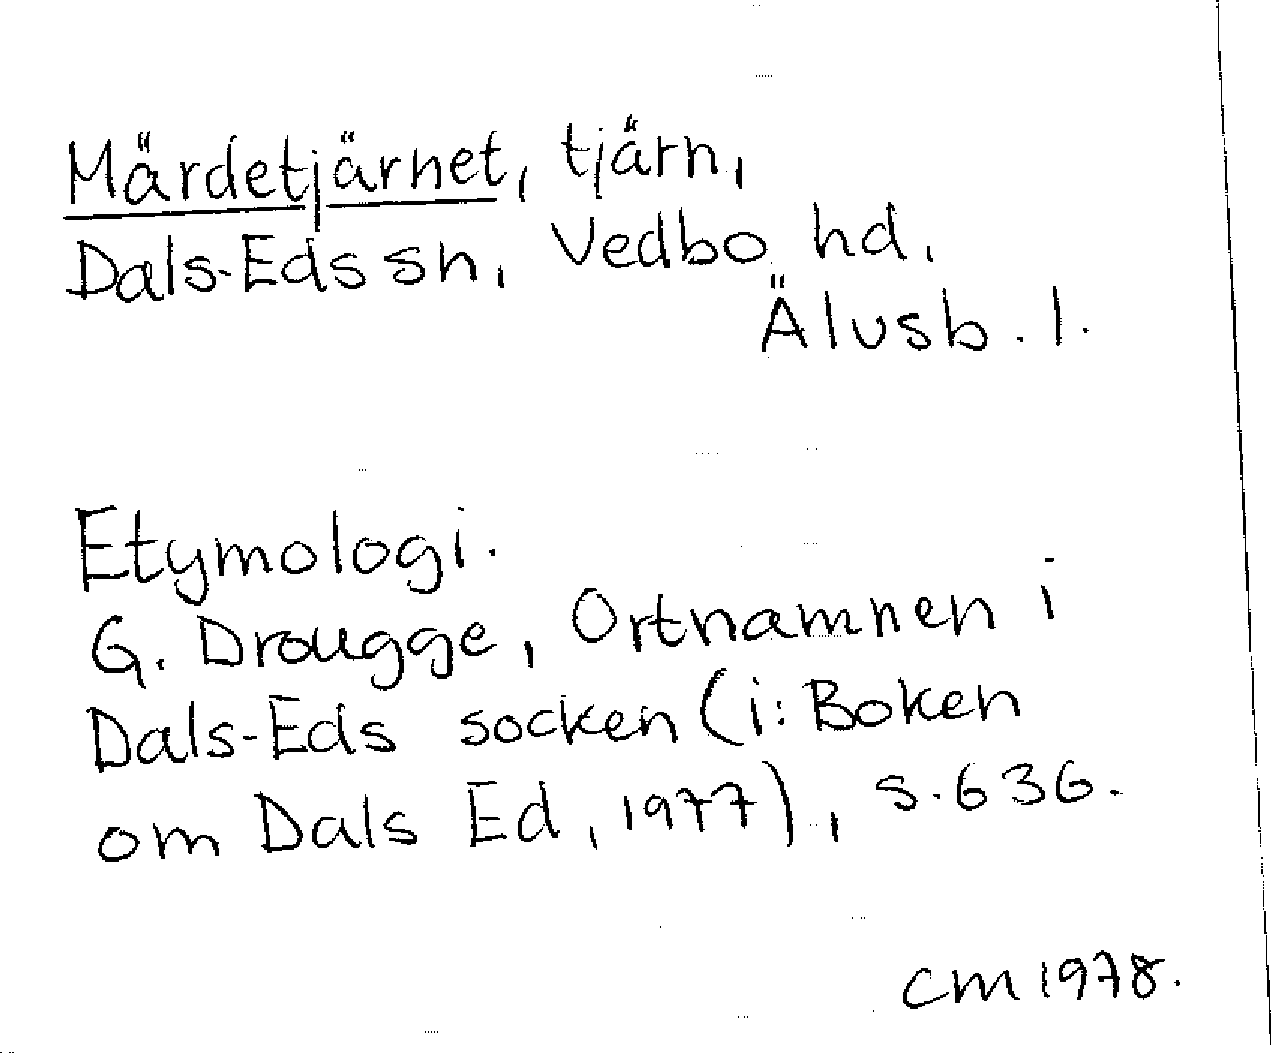 Märdetjärnet, tjärn,
Dals-Eds sn, Vedbo hd,
Älvsb. l.
Etymologi.
G. Drougge, Ortnamnen i
Dals-Eds socken (i: Boken
om Dals Ed, 1977), s. 636.
CM 1978.